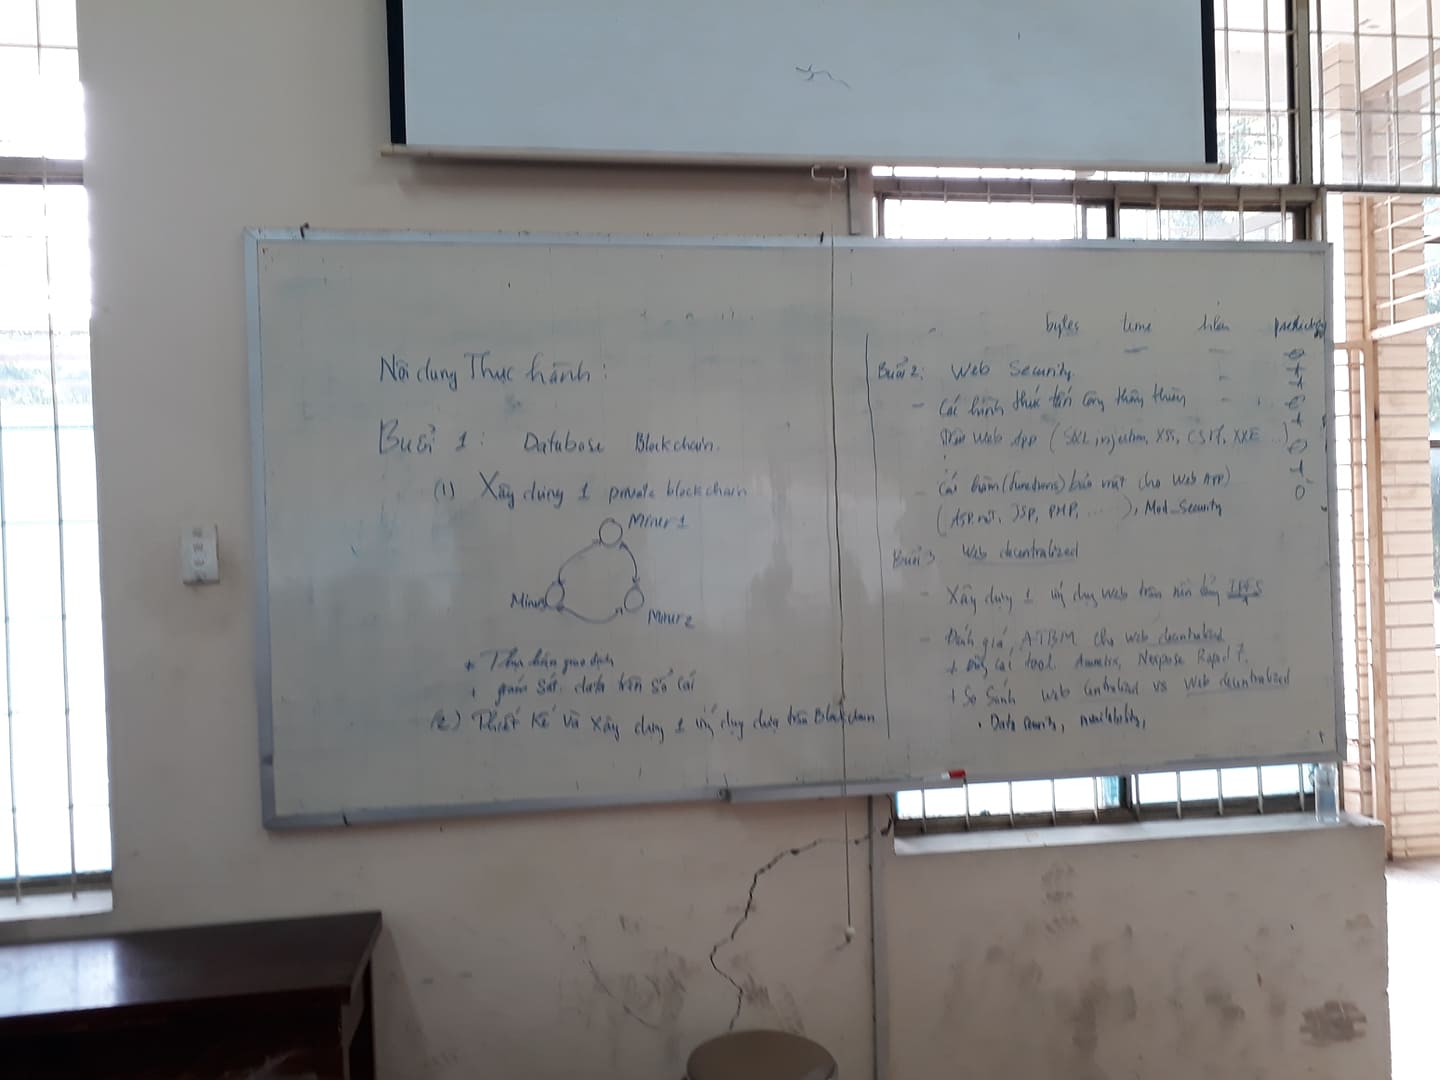 Nội dung Thực hành:
Buổi 1: Database Blockchain.
(1) Xây dựng 1 private blockchain
Miner 1
Miner
Miner 2
+ giám sát data trên sổ cái
(2) Thiết kế và Xây dựng 1 ứng dụng dựa trên Blockchain
bytes time prediction
Buổi 2: Web Security
- Các hình thức tấn công
Web App (SQL injection, XSS, CSRF, XXE ...)
- Các hàm (functions) bảo mật cho Web App)
(ASP.net, JSP, PHP, ...), Mod_Security
Buổi 3 Web decentralized
- Xây dựng 1 ứng dụng Web trên nền tảng IPFS
- Đánh giá ATBM cho web decentralized
+ Dùng các tool. Acunetix, Nexpose Rapid 7.
+ So sánh web centralized vs Web decentralized
• Data security, availability,